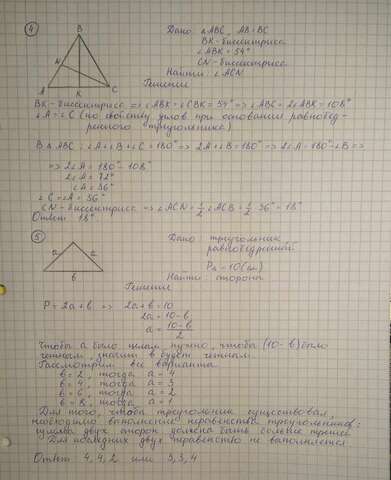 ④
B
N
A K C
Дано: ∠ABC, AB=BC
BK-биссектриса
∠ABK=54°
CN-биссектриса
Найти: ∠ACN
Решение
BK-биссектриса => ∠ABK=∠CBK=54° => ∠ABC=2∠ABK=108°
∠A=∠C (по свойству углов при основании равнобед-
ренного треугольника)
В △ABC: ∠A+∠B+∠C=180° => 2∠A+∠B=180° => 2∠A=180°-∠B =>
=> 2∠A=180°-108°
2∠A=72°
∠A=36°
∠C=∠A=36°
CN-биссектриса => ∠ACN=1/2∠ACB=1/2·36°=18°
Ответ: 18°
⑤
a a
в
Дано: треугольник
равнобедренный
P△=10(см)
Найти: стороны
Решение
P=2a+в => 2a+в=10
2a=10-в
a=(10-в)/2
Чтобы a было целым, нужно, чтобы (10-в) было
четным, значит в будет четным.
Рассмотрим все варианта
в=2, тогда a=4
в=4, тогда a=3
в=6, тогда a=2
в=8, тогда a=1
Для того, чтобы треугольник существовал,
необходимо выполнение неравенства треугольников:
сумма двух сторон должна быть больше третьей
Для последних двух неравенство не выполняется
Ответ: 4,4,2 или 3,3,4